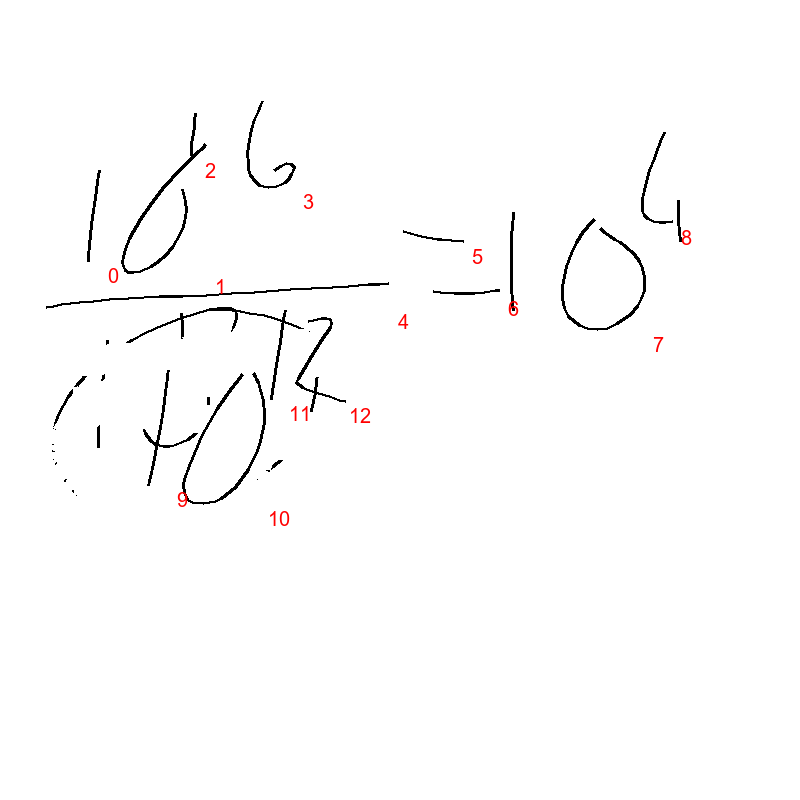 10^16 / 10^12 = 10^4
0 1 2 3 4 5 6 7 8 9 10 11 12